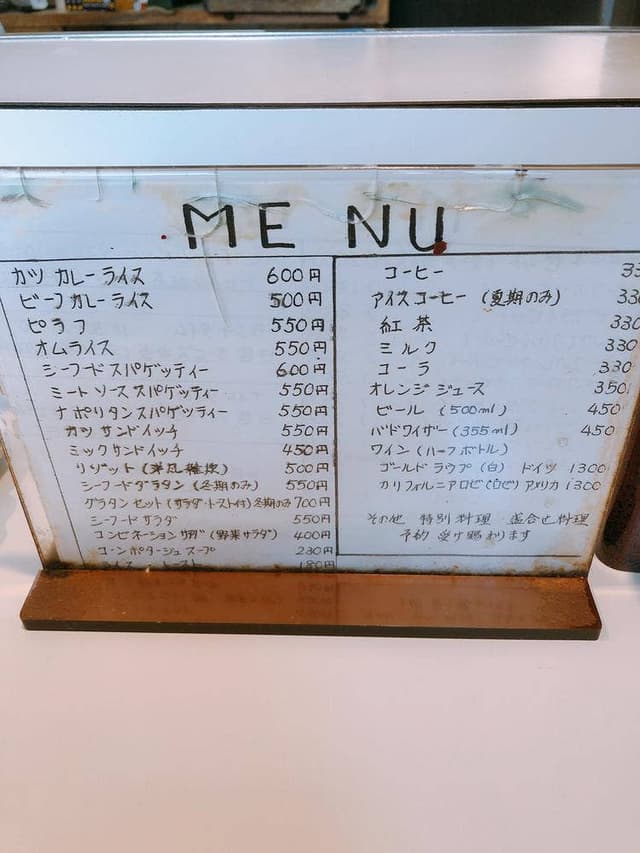 MENU
カツカレーライス 600円
ビーフカレーライス 500円
ピラフ 550円
オムライス 550円
シーフードスパゲッティー 600円
ミートソーススパゲッティー 550円
ナポリタンスパゲッティー 550円
カツサンドイッチ 550円
ミックサンドイッチ 450円
リゾット(洋風雑炊) 500円
シーフードグラタン(冬期のみ) 550円
グラタンセット(サラダ・トースト付)冬期のみ 700円
シーフードサラダ 550円
コンビネーションサラダ(野菜サラダ) 400円
コーンポタージュスープ 230円
ライス トースト 180円
コーヒー
アイスコーヒー(夏期のみ) 330
紅茶 330
ミルク 330
コーラ 330
オレンジジュース 350
ビール (500ml) 450
バドワイザー(355ml) 450
ワイン (ハーフボトル)
ゴールドラウプ(白) ドイツ 1300
カリフォルニアロゼ(ロゼ)アメリカ 1300
その他 特別料理・盛合せ料理
予約 受け賜わります